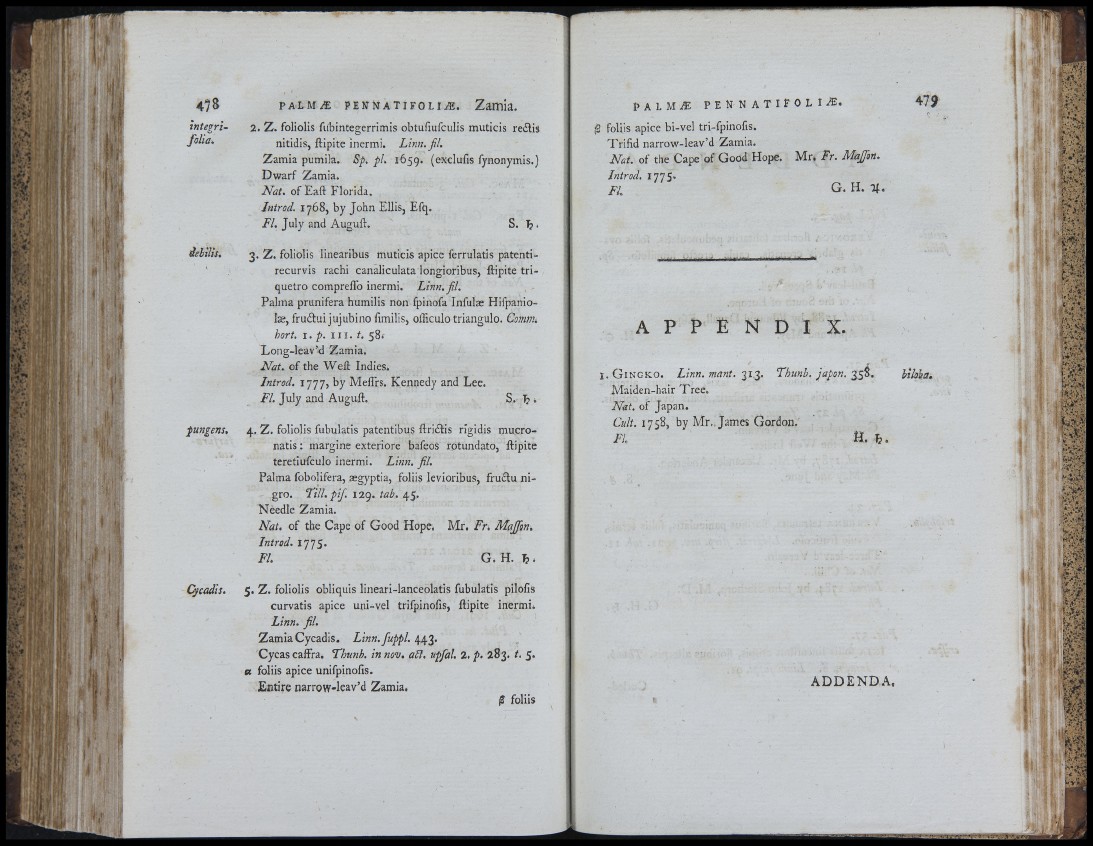 478 PALMÆ PENNATIFOLIÆ. Zamia.
integri-
folia.
2. Z. foliolis ſubintegerrimis obtuſiuſculis muticis rectis
nitidis, ſtipite inermi. Linn. fil.
Zamia pumila. Sp. pl. 1659. (excluſis ſynonymis.)
Dwarf Zamia.
Nat. of Eaſt Florida.
Introd. 1768, by John Ellis, Eſq.
Fl. July and Auguſt. S. ♄.
debilis.
3. Z. foliolis linearibus muticis apice ſerrulatis patenti-
recurvis rachi canaliculata longioribus, ſtipite tri-
quetro compreſſo inermi. Linn. fil.
Palma prunifera humilis non ſpinoſa Inſulæ Hiſpanio-
læ, fructui jujubino ſimilis, oſſiculo triangulo. Comm.
hort. 1. p. 111. t. 58.
Long-leav'd Zamia.
Nat. of the Weſt Indies.
Introd. 1777, by Meſſrs. Kennedy and Lee.
Fl. July and Auguſt. S. ♄.
pungens.
4. Z. foliolis ſubulatis patentibus ſtrictis rigidis mucro-
natis: margine exteriore baſeos rotundato, ſtipite
teretiuſculo inermi. Linn. fil.
Palma ſobolifera, ægyptia, foliis levioribus, fructu ni-
gro. Till. piſ. 129. tab. 45.
Needle Zamia.
Nat. of the Cape of Good Hope. Mr. Fr. Maſſon.
Introd. 1775.
Fl. G. H. ♄.
Cycadis.
5. Z. foliolis obliquis lineari-lanceolatis ſubulatis piloſis
curvatis apice uni-vel triſpinoſis, ſtipite inermi.
Linn. fil.
Zamia Cycadis. Linn. ſuppl. 443.
Cycas caffra. Thunb. in nov. act. upſal. 2. p. 283. t. 5.
α foliis apice uniſpinoſis.
Entire narrow-leav'd Zamia.
β foliis
PALMÆ PENNATIFOLIÆ. 479
β foliis apice bi-vel tri-ſpinoſis.
Trifid narrow-leav'd Zamia.
Nat. of the Cape of Good Hope. Mr. Fr. Maſſon.
Introd. 1775.
Fl. G. H. ♃.
APPENDIX.
1. GINGKO. Linn. mant. 313. Thunb. japon. 358. biloba.
Maiden-hair Tree.
Nat. of Japan.
Cult. 1758, by Mr. James Gordon.
Fl. H. ♄.
ADDENDA,